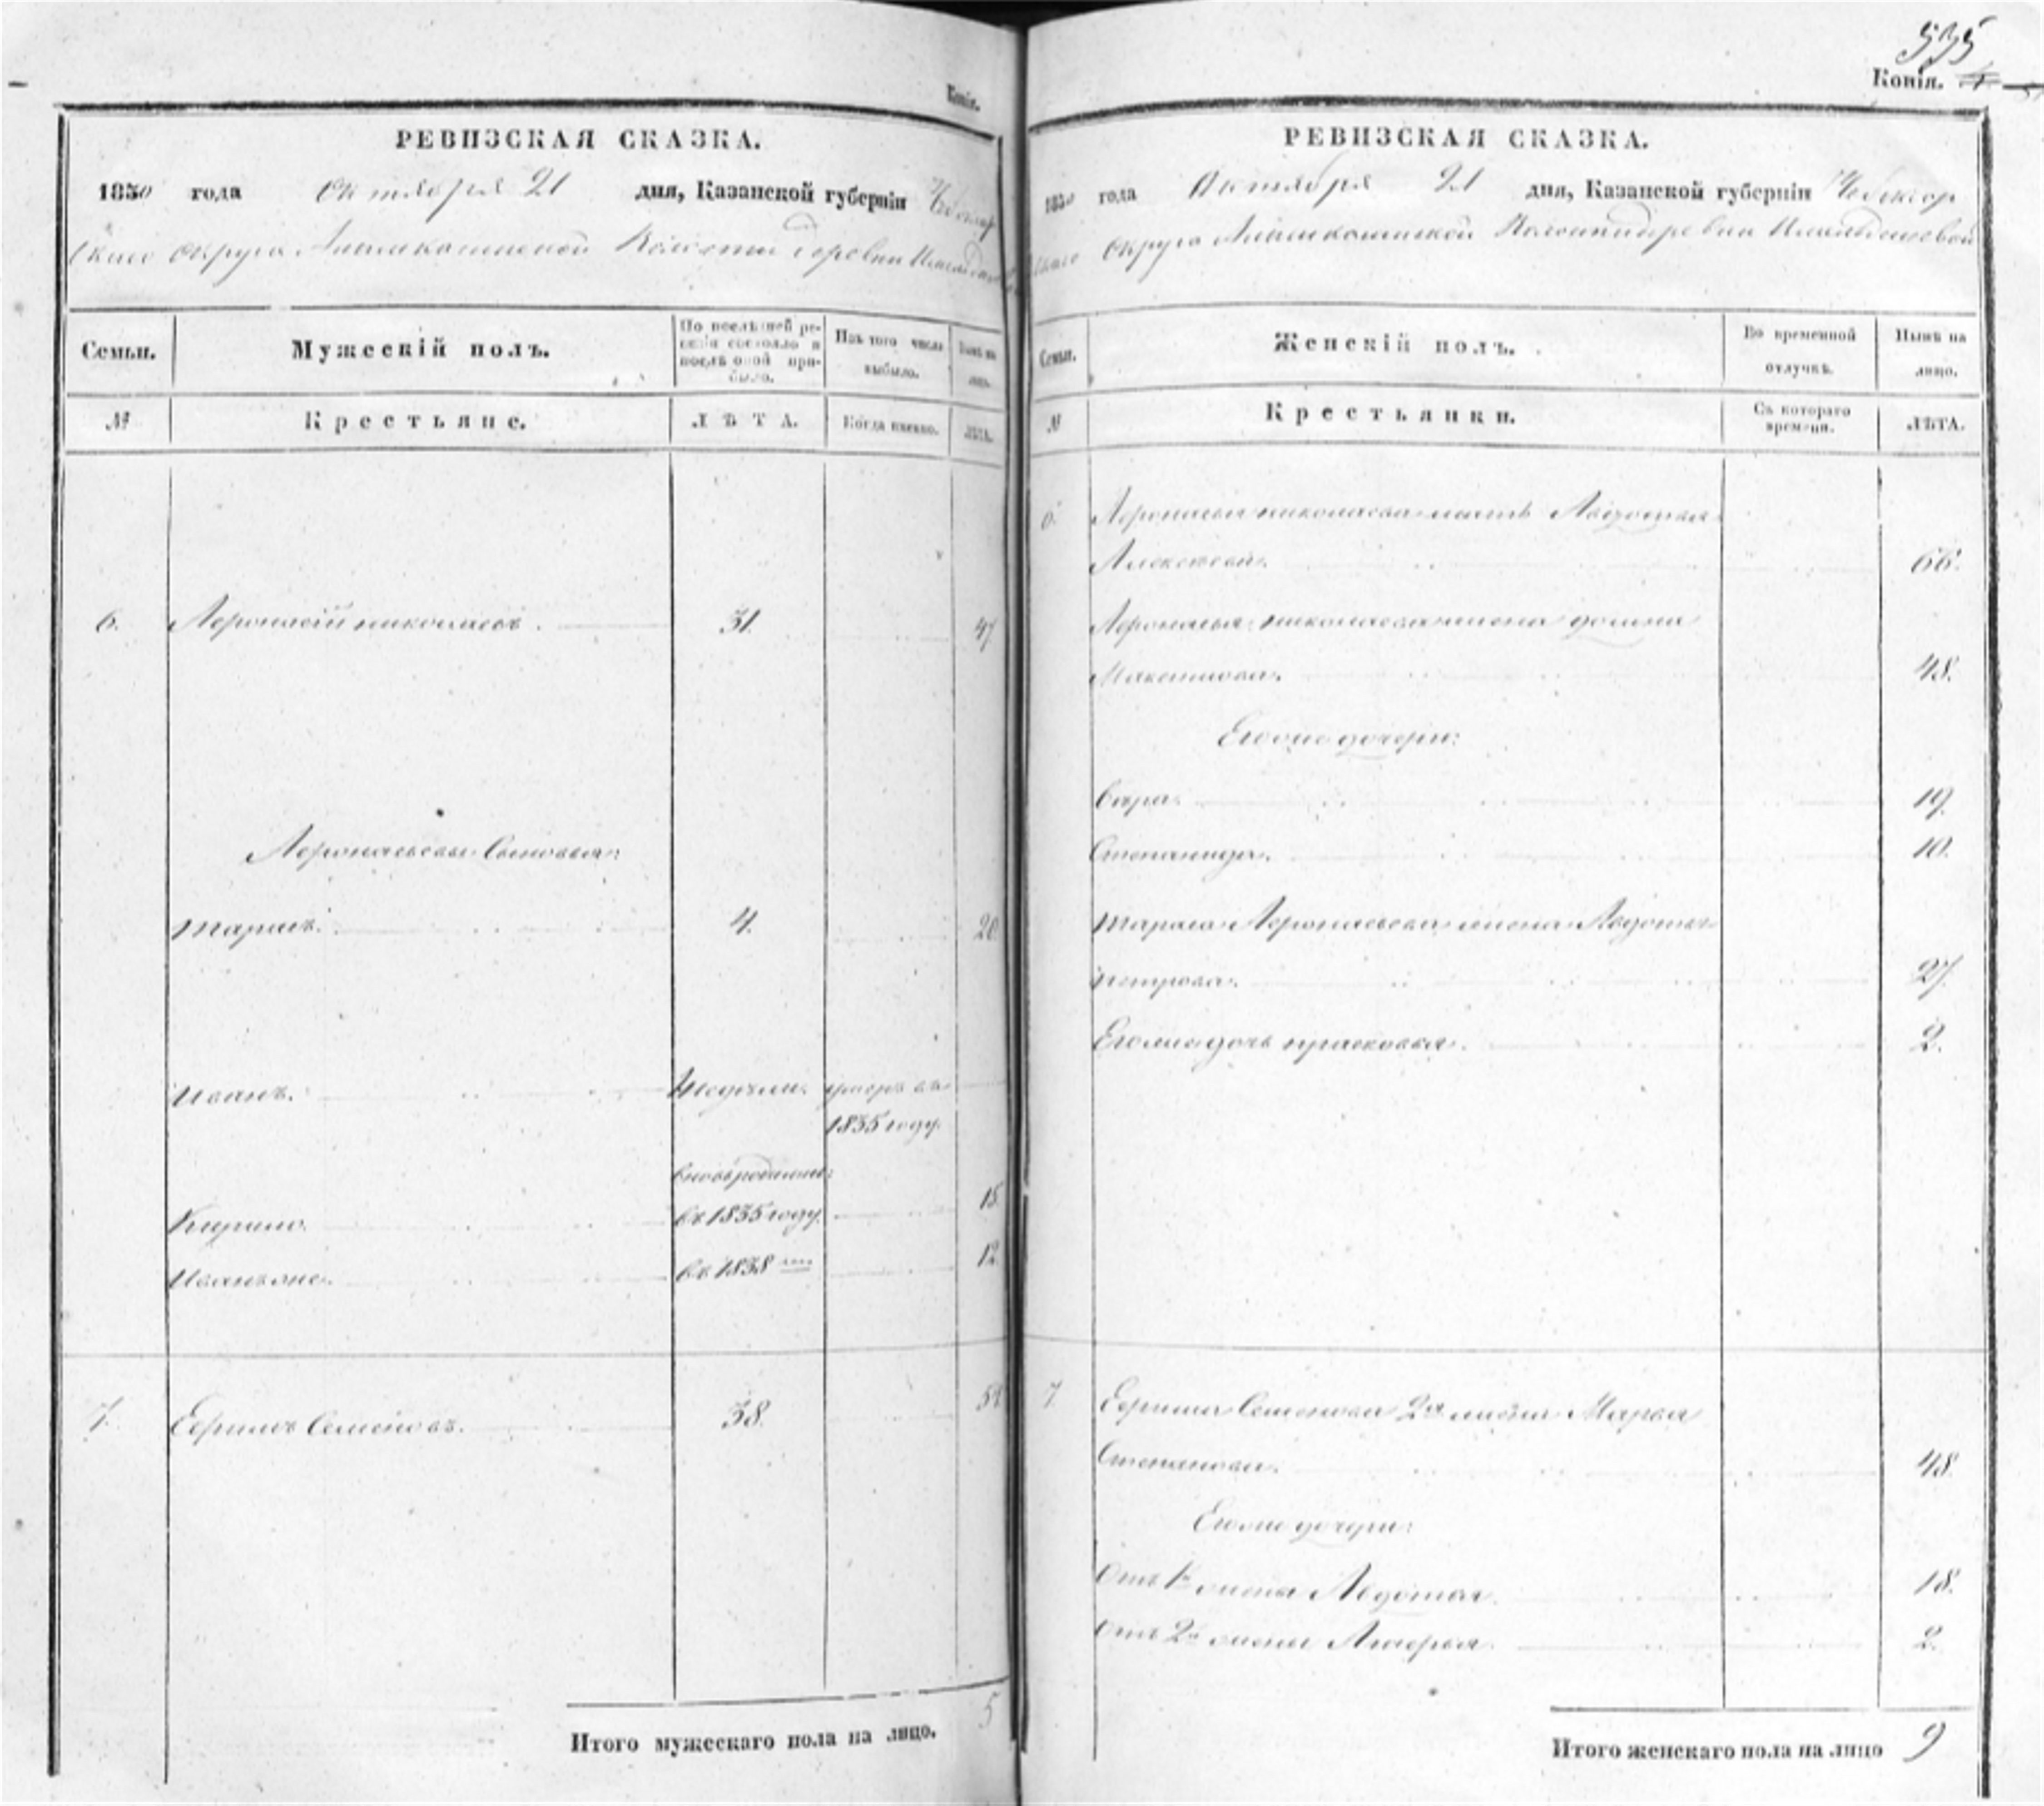 Копія.
РЕВИЗСКАЯ СКАЗКА.
1850 года Октября 21 дня, Казанской губерніи Чебоксар
скаго округа Волости деревни
Семьи.
Мужескій полъ.
По послѣдней ре-
визіи состояло и
послѣ оной при-
было.
Изъ того числа
выбыло.
Нынѣ на
лицо.
№
Крестьяне.
ЛѢТА.
Когда именно.
ЛѢТА.
6. Афонасій николаевъ. 31. 47
Афонасьевы Сыновья:
тарасъ. 4. 20
иванъ. недѣли. умеръ въ
1835 году.
вновьрожденъ
Кирило. въ 1835 году. 15
иванъ въ 1838 12.
7. Ефимъ Семеновъ. 38.
Итого мужескаго пола на лицо. 5
535
Копія.
РЕВИЗСКАЯ СКАЗКА.
1850 года Октября 21 дня, Казанской губерніи Чебоксар
скаго округа Волости деревни
Семьи.
Женскій полъ.
Во временной
отлучкѣ.
Нынѣ на
лицо.
№
Крестьянки.
Съ котораго
времени.
ЛѢТА.
6. Афонасья николаева мать Авдотья
Алексѣева. 66.
Афонасья николаева жена
Максимова. 48.
Егоже дочери:
19.
Степанида. 10.
тараса Афонасьева жена Авдотья
петрова. 27.
Егоже дочь прасковья. 2.
7 Ефима Семенова 2я жена Марья
Степанова. 48.
Егоже дочери:
Отъ 1й жены Авдотья. 18.
Отъ 2й жены 2.
Итого женскаго пола на лицо 9